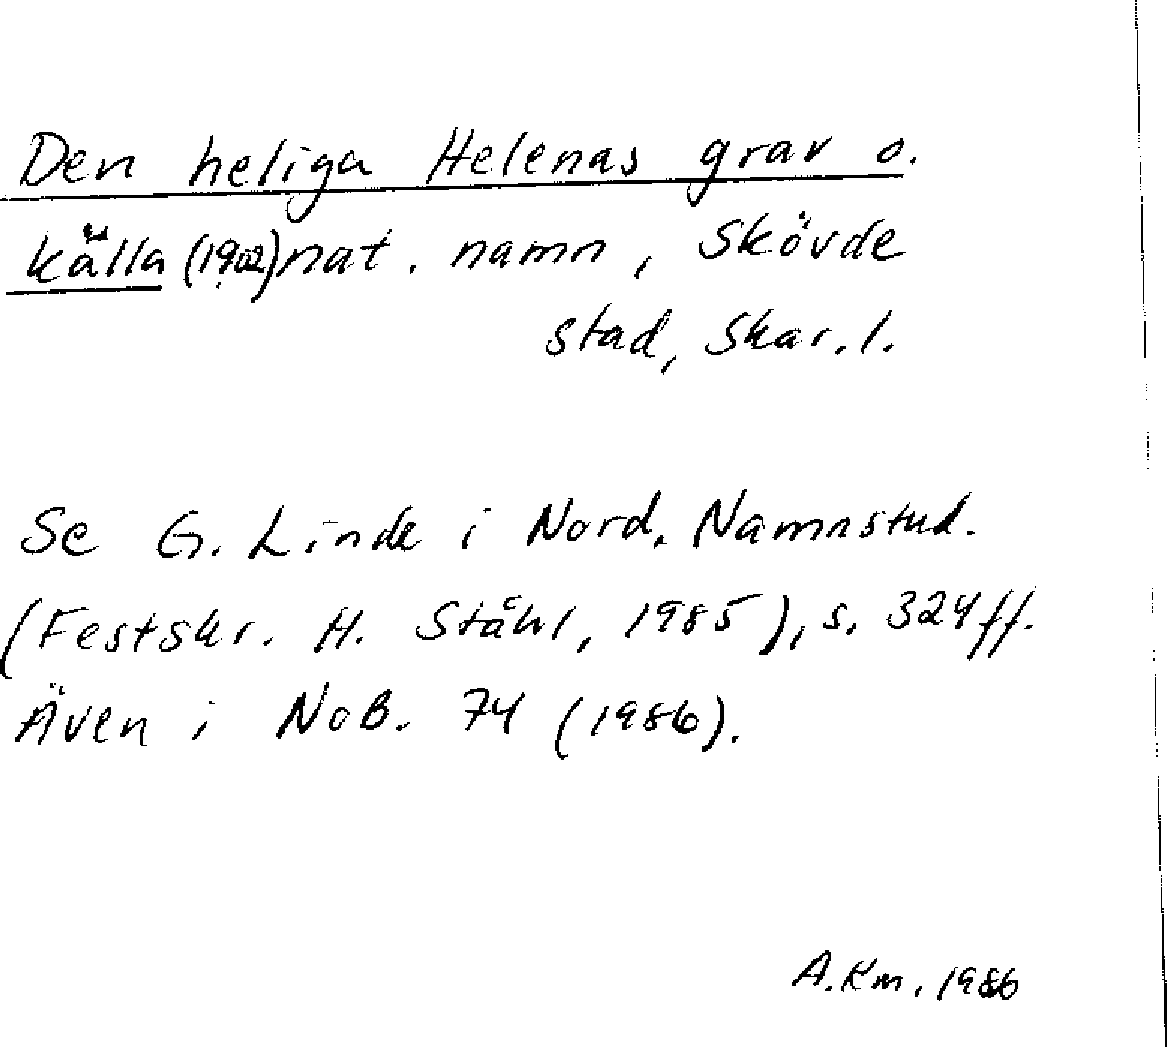 Den heliga Helenas grav o.
källa (1902) nat. namn, Skövde
stad, Skar. l.
Se G. Linde i Nord. Namnstud.
(Festskr. H. Ståhl, 1985), s. 324 ff.
Även i NoB. 74 (1986).
A. Km. 1986